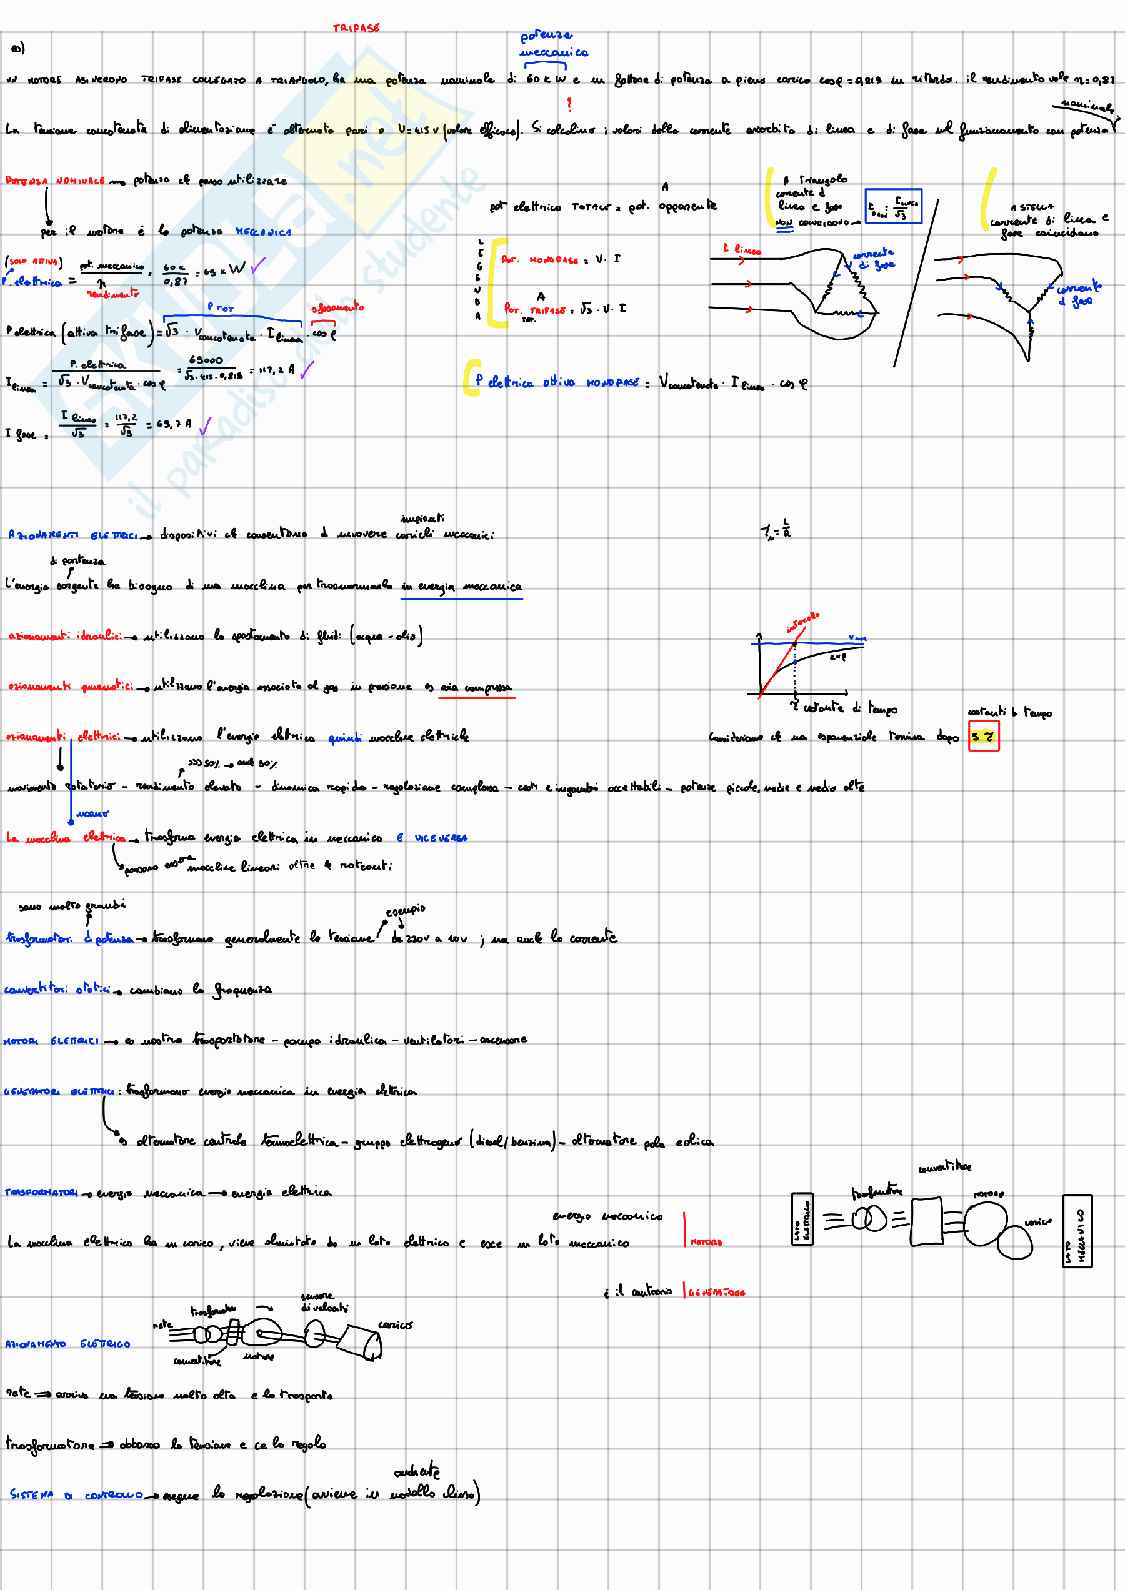 TRIFASE
es)
potenza
meccanica
UN MOTORE ASINCRONO TRIFASE COLLEGATO A TRIANGOLO, ha una potenza nominale di 60 kW e un fattore di potenza a pieno carico cosφ = 0,818 in ritardo. il rendimento vale η = 0,87
?
nominale
La tensione concatenata di alimentazione è alternata pari a V=415 V (valore efficace). Si calcolino i valori della corrente assorbita di linea e di fase nel funzionamento con potenza
POTENZA NOMINALE → potenza che posso utilizzare
per il motore è la potenza MECCANICA
(SOLO ATTIVA)
P. elettrica = pot. meccanica / η = 60 k / 0,87 = 69 kW ✓
rendimento
P TOT
sfasamento
P elettrica (attiva trifase) = √3 · Vconcatenata · I linea · cos φ
I linea = P. elettrica / √3 · Vconcatenata · cos φ = 69000 / √3 · 415 · 0,818 = 117,2 A ✓
I fase = I linea / √3 = 117,2 / √3 = 67,7 A ✓
A
pot elettrica TOTALE = pot. apparente
Pot. MONOFASE = V · I
A
Pot. TRIFASE = √3 · V · I
TOT.
P elettrica attiva MONOFASE = Vconcatenata · I linea · cos φ
A Triangolo
corrente di
linea e fase
NON coincidono →
I FASE = I LINEA / √3
A STELLA
corrente di linea e
fase coincidono
I linea
corrente
di fase
corrente
di fase
impianti
AZIONAMENTI ELETTRICI → dispositivi che consentono di muovere carichi meccanici
τ = L/R
di partenza
L'energia sorgente ha bisogno di una macchina per trasformarla in energia meccanica
azionamenti idraulici → utilizzano lo spostamento di fluidi (acqua - olio)
azionamenti pneumatici → utilizzano l'energia associata al gas in pressione es aria compressa
τ costante di tempo
costanti di tempo
azionamenti elettrici → utilizzano l'energia elettrica quindi macchine elettriche
Consideriamo che un esponenziale termina dopo 5 τ
movimento rotatorio - rendimento elevato - dinamica rapida - regolazione complessa - costi e ingombri accettabili - potenze piccole, medie e medio alte
La macchina elettrica → trasforma energia elettrica in meccanica E VICEVERSA
possono essere macchine lineari oltre a rotanti
sono molto grandi
esempio
trasformatori di potenza → trasformano generalmente la tensione da 220V a 10V ; ma anche la corrente
convertitori statici → cambiano la frequenza
MOTORI ELETTRICI → es nastro trasportatore - pompa idraulica - ventilatori - ascensore
GENERATORI ELETTRICI : trasformano energia meccanica in energia elettrica
es alternatore centrale termoelettrica - gruppo elettrogeno (diesel/benzina) - alternatore pala eolica
TRASFORMATORI → energia meccanica → energia elettrica
energia meccanica
La macchina elettrica ha un carico, viene alimentato da un lato elettrico e esce un lato meccanico
MOTORE
è il contrario GENERATORE
LATO
ELETTRICO
trasformatore
convertitore
MOTORE
carico
LATO
MECCANICO
AZIONAMENTO ELETTRICO
rete
trasformatore
convertitore
motore
sensore
di velocità
carico
rete ⇒ arriva una tensione molto alta e la trasporta
trasformatore ⇒ abbassa la tensione e ce la regola
SISTEMA DI CONTROLLO → esegue la regolazione (avviene in anello chiuso)